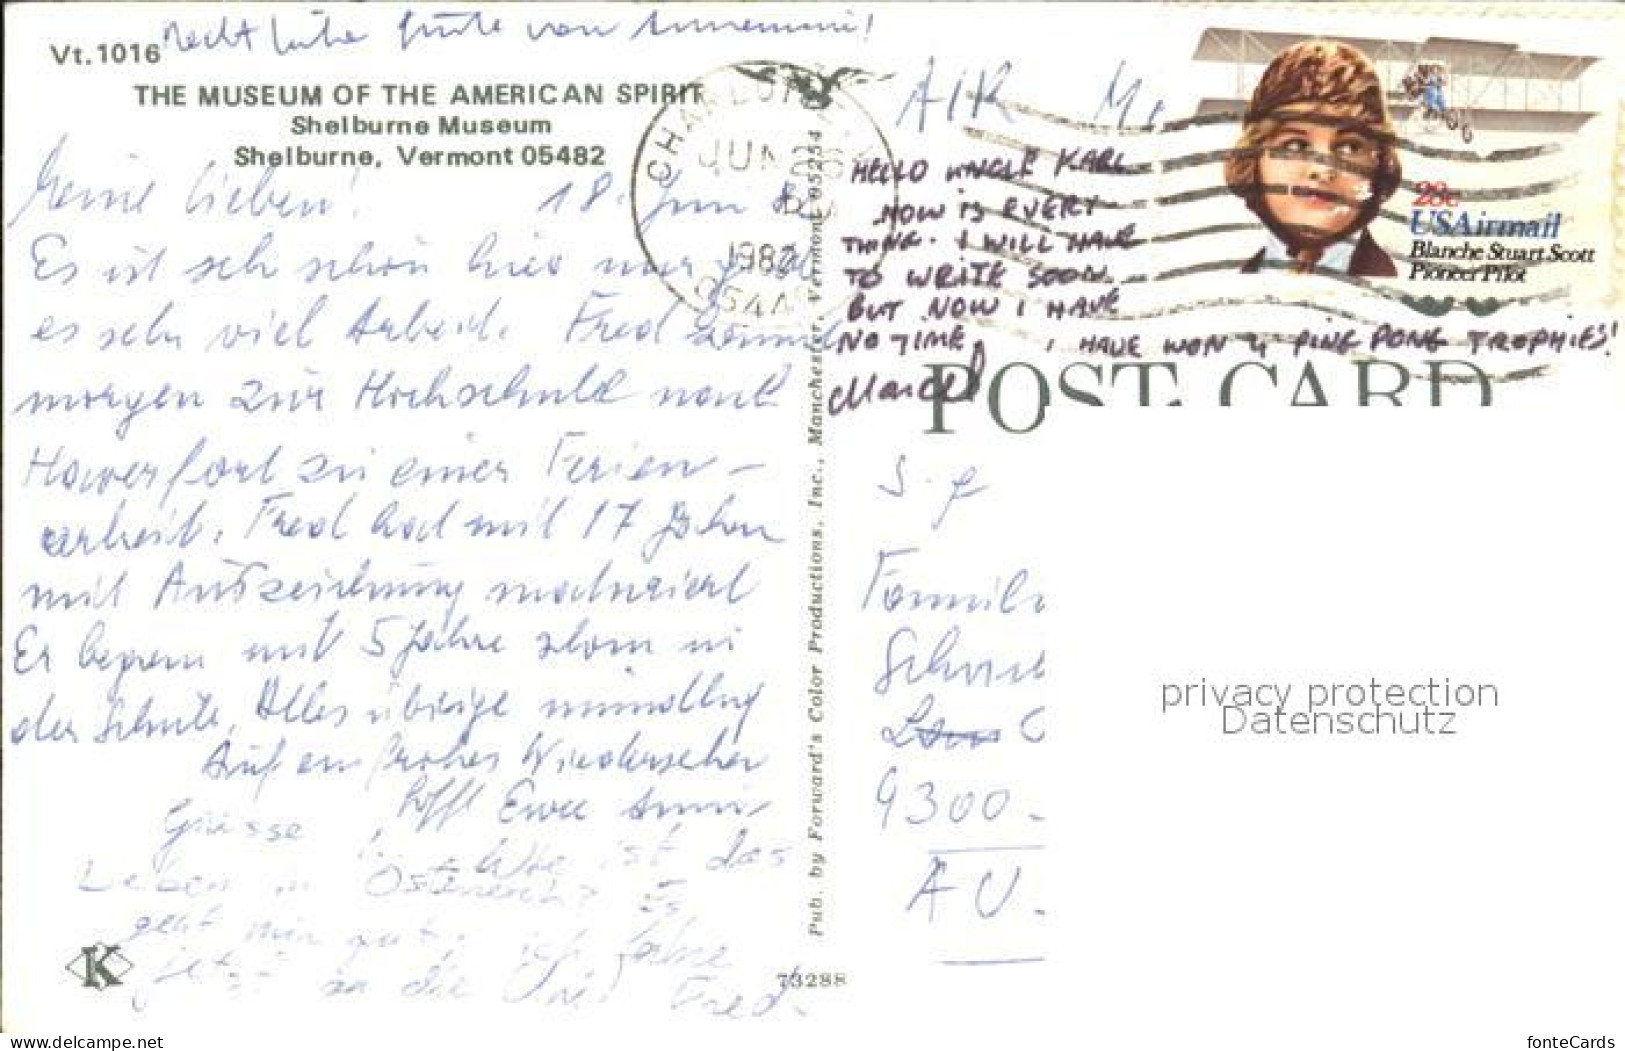 Vt.1016 Recht liebe Grüße von Annemarie!
THE MUSEUM OF THE AMERICAN SPIRIT
Shelburne Museum
Shelburne, Vermont 05482
Meine Lieben! 18. Juni
Es ist sehr schön hier nur
es sehr viel Arbeit. Fred kommt
morgen zur Hochschule nach
Howerfort zu einer Ferien-
arbeit. Fred hat mit 17 Jahren
mit Auszeichnung maturiert
Er begann mit 5 Jahre schon in
der Schule. Alles übrige mündlich
Auf ein frohes Wiedersehen
hofft Eure Anni
Grüsse, Wie ist das
Leben in Österreich? Es
geht mir gut, ich fahre
jetzt zu die Uni Fred.
K
73288
Pub. by Forward's Color Productions, Inc., Manchester, Vermont 05254
CHARLOTTE
JUN
1982
AIR
28c
USAirmail
Blanche Stuart Scott
Pioneer Pilot
HELLO UNCLE KARL
HOW IS EVERY
THING. I WILL HAVE
TO WRITE SOON.
BUT NOW I HAVE
NO TIME. I HAVE WON 4 PING PONG TROPHIES!
Marcel
POST CARD
9300
AU
privacy protection
Datenschutz
www.delcampe.net
fonteCards